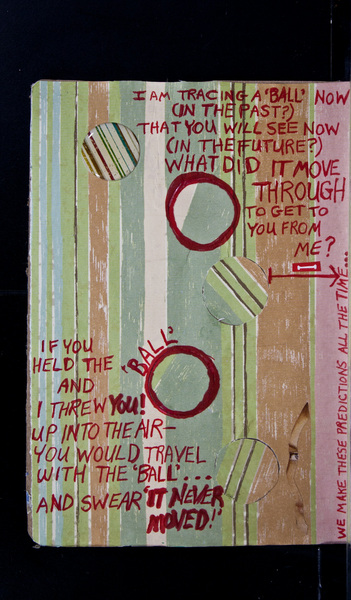 I AM TRACING A 'BALL' NOW
(IN THE PAST?)
THAT YOU WILL SEE NOW
(IN THE FUTURE?)
WHAT DID IT MOVE
THROUGH
TO GET TO
YOU FROM
ME?
WE MAKE THESE PREDICTIONS ALL THE TIME...
IF YOU
HELD THE 'BALL'
AND
I THREW YOU!
UP INTO THE AIR—
YOU WOULD TRAVEL
WITH THE 'BALL'...
AND SWEAR 'IT NEVER
MOVED!'